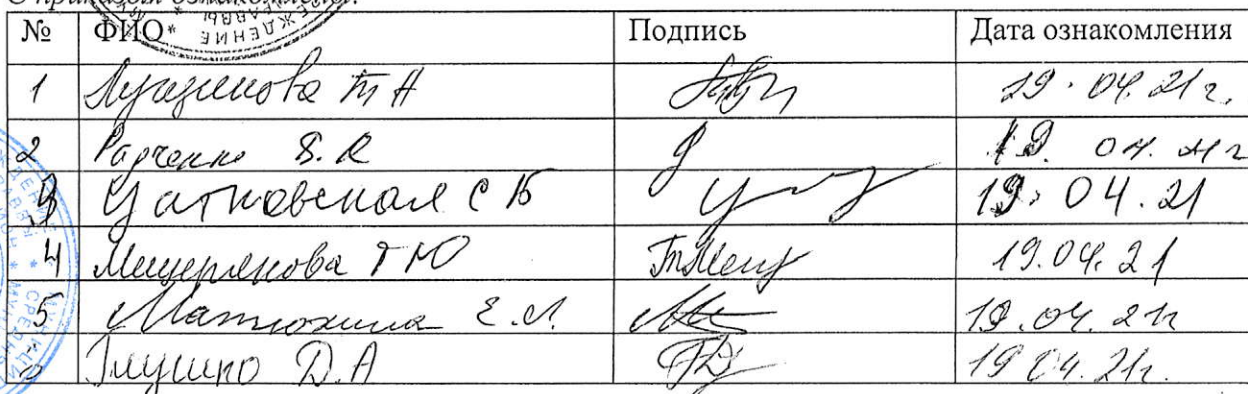 С приказом ознакомлены:
№ ФИО Подпись Дата ознакомления
1 Т А 19.04.21г.
2 Радченко 19. 04. 21г
3 Цатковская С Б 19.04.21
4 Мещерякова Т Ю 19.04.21
5 Матюхина Е.Л. 19.04.21г
Глушко Д.А 19 04.21г.